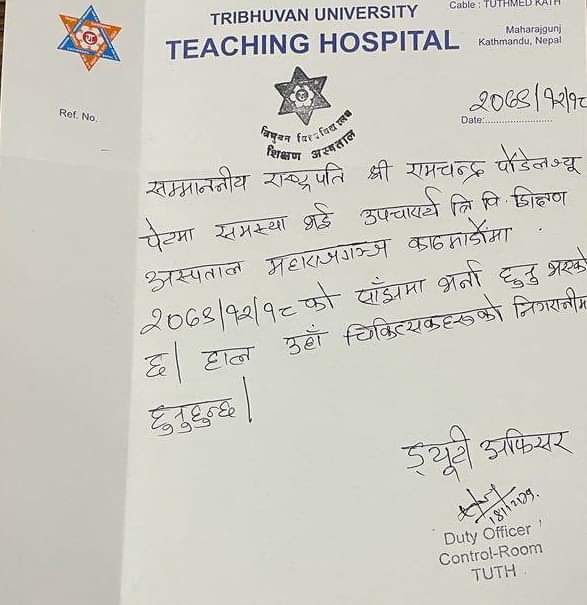 Cable : TUTHMED KATH
TRIBHUVAN UNIVERSITY
TEACHING HOSPITAL
Maharajgunj
Kathmandu, Nepal
Ref. No.
त्रिभुवन विश्वविद्यालय
शिक्षण अस्पताल
२०७९/१२/१८
Date:........................
सम्माननीय राष्ट्रपति श्री रामचन्द्र पौडेलज्यू
पेटमा समस्या भई उपचारार्थ त्रि वि. शिक्षण
अस्पताल महाराजगञ्ज काठमाडौंमा
२०७९/१२/१८ को साँझमा भर्ना हुनु भएको
छ। हाल उहाँ चिकित्सकहरूको निगरानीमा
हुनुहुन्छ।
ड्यूटी अफिसर
Duty Officer
Control-Room
TUTH